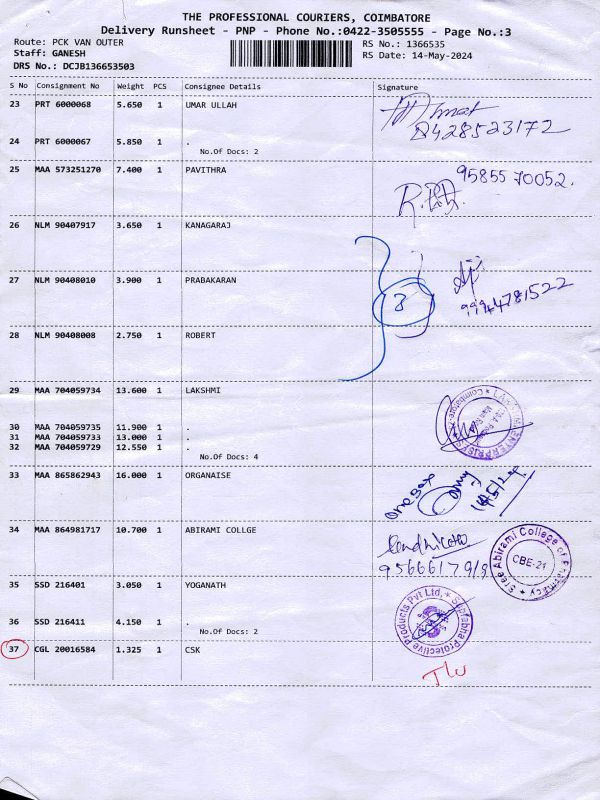 THE PROFESSIONAL COURIERS, COIMBATORE
Delivery Runsheet - PNP - Phone No.:0422-3505555 - Page No.:3
Route: PCK VAN OUTER
Staff: GANESH
DRS No.: DCJB136653503
RS No.: 1366535
RS Date: 14-May-2024
S No Consignment No Weight PCS Consignee Details Signature
23 PRT 6000068 5.650 1 UMAR ULLAH
8428523172
24 PRT 6000067 5.850 1 .
No.Of Docs: 2
25 MAA 573251270 7.400 1 PAVITHRA
9585570052.
26 NLM 90407917 3.650 1 KANAGARAJ
27 NLM 90408010 3.900 1 PRABAKARAN
3
9994781522
28 NLM 90408008 2.750 1 ROBERT
29 MAA 704059734 13.600 1 LAKSHMI
30 MAA 704059735 11.900 1 .
31 MAA 704059733 13.000 1 .
32 MAA 704059729 12.550 1 .
No.Of Docs: 4
33 MAA 865862943 16.000 1 ORGANAISE
34 MAA 864981717 10.700 1 ABIRAMI COLLGE
Sree Abirami College of Pharmacy
CBE-21
35 SSD 216401 3.050 1 YOGANATH
36 SSD 216411 4.150 1 .
No.Of Docs: 2
Protective Products Pvt Ltd.
37 CGL 20016584 1.325 1 CSK